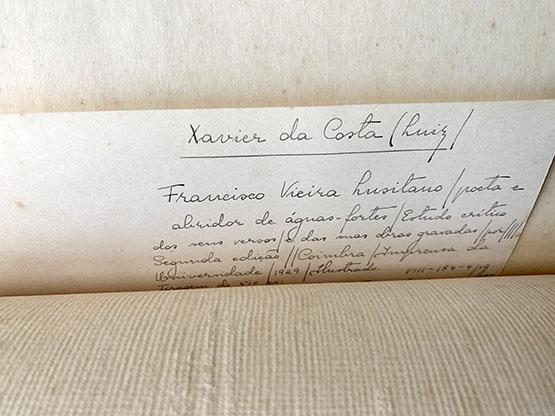 Xavier da Costa (Luiz)
Francisco Vieira Lusitano / poeta e
abridor de águas-fortes / Estudo critico
dos seus versos / e das suas obras gravadas / por ////
Segunda edição // Coimbra / Imprensa da
Universidade / 1929 / Ilustrado.
Tiragem de